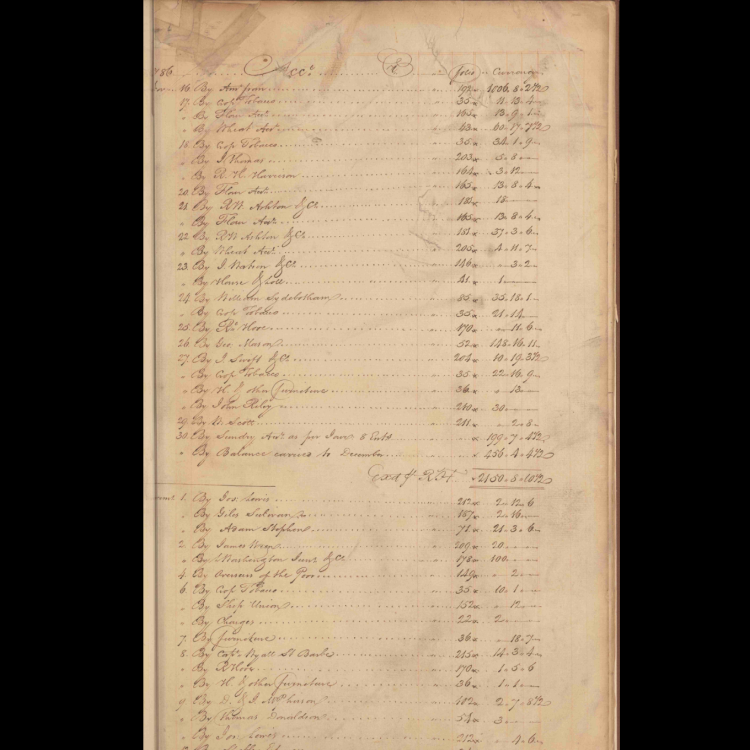 786 Acct. Cr folio Currency
16 By Amt from 192 1006.8.2½
17 By Crop Tobacco 35 11.13.4
" By Flour Acct 165 13.9.1
" By Wheat Acct 63 60.17.7½
18 By Crop Tobacco 35 34.1.9
" By J. Thomas 203 5.8
" By R. H. Harrison 164 3.12
20 By Flour Acct 165 13.8.4
21 By R.W. Ashton & Co 181 18
" By Flour Acct 165 13.8.4
22 By R.W. Ashton & Co 181 37.3.6
" By Wheat Acct 205 4.11.7
23 By J. Watson & Co 146 3.2
" By Hare & 41 1
24 By William Sydebotham 85 35.18.1
" By Crop Tobacco 35 21.14
25 By Rd Hooe 170 11.6
26 By Geo. Mason 52 148.16.11
27 By J. Swift & Co 204 10.19.3½
" By Crop Tobacco 35 22.16.9
" By H. & other Furniture 36 13
" By John Riley 210 30
29 By Scott 211 2.8
30 By Sundry Acct as per Jour 8 Ents 199.7.4½
" By Balance carried to December 256.4.4½
Exd pr R H £2150.5.10½
1 By Geo. Lewis 212 2.12.6
" By Giles Sulivan 187 2.16
" By Adam Stephen 72 21.3.6
2 By James Wren 209 20
" By Washington Junr & Co 178 100
4 By Overseers of the Poor 149 2
6 By Crop Tobacco 35 10.1
" By Ship Union 152 12
" By Charges 22 2
7 By Furniture 36 18.7
8 By Capt. Wyatt St Barbe 215 14.3.4
" By R Hooe 170 1.5.6
" By H. & other Furniture 36 1.1
9 By D. & I. McPherson 102 2.7.8½
" By Thomas Donaldson 54 3
" By Jos. Lewis 212 4.6